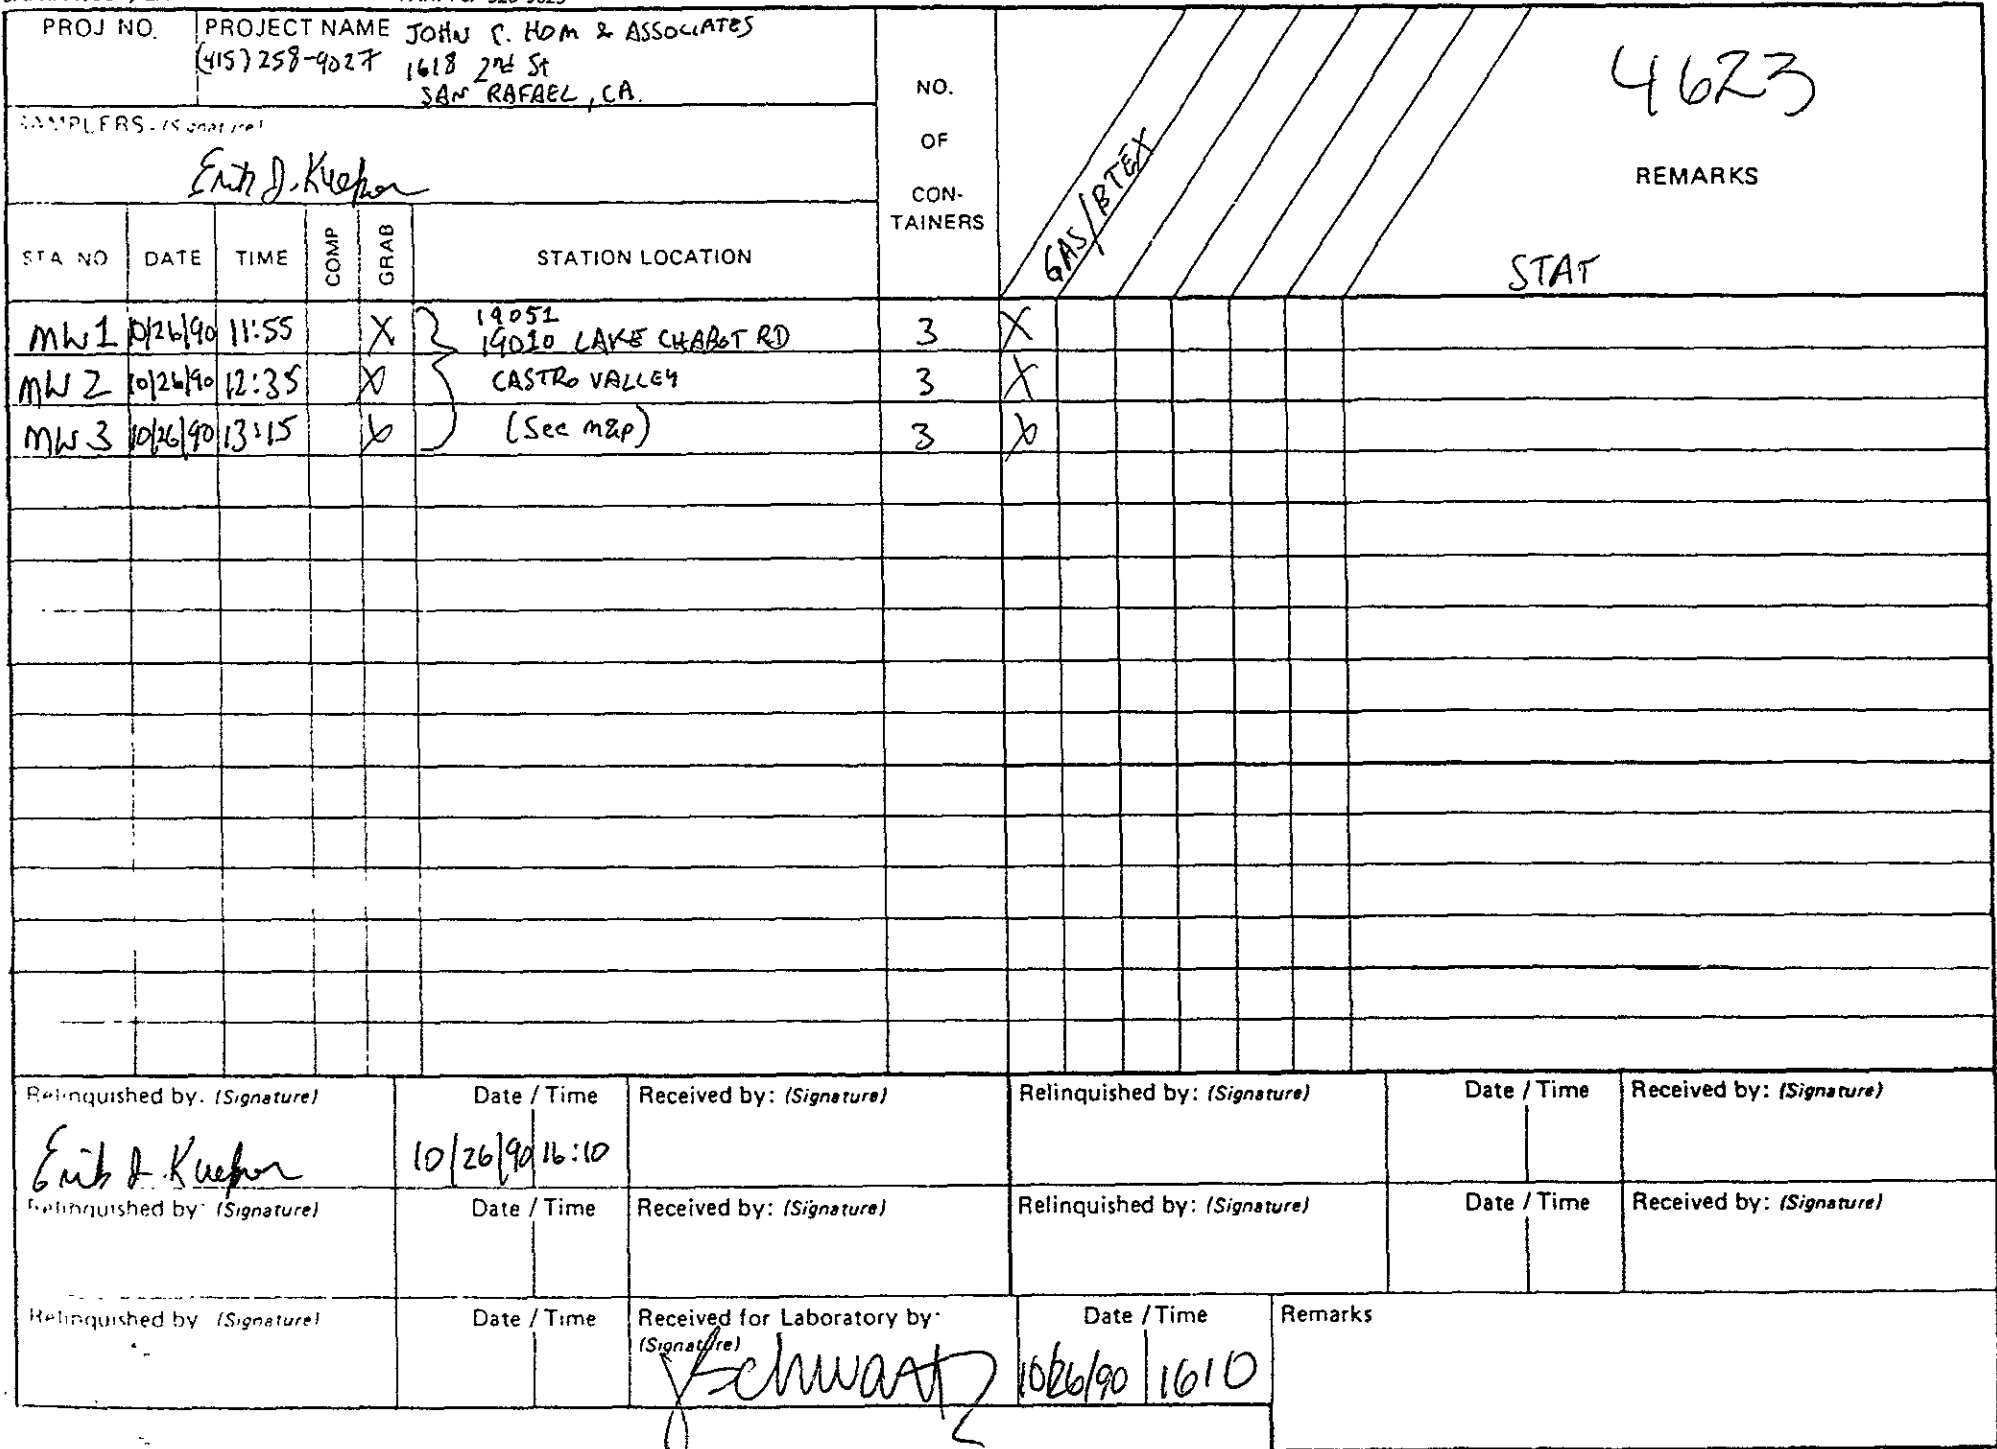 PROJ NO.
PROJECT NAME JOHN C. HOM & ASSOCIATES
(415) 258-9027 1618 2nd St
SAN RAFAEL, CA.
SAMPLERS: (Signature)
Erik D. Kuefner
NO.
OF
CON-
TAINERS
GAS/BTEX
4623
REMARKS
STAT
STA NO DATE TIME COMP GRAB STATION LOCATION
19051
MW1 10/26/90 11:55 X 19010 LAKE CHABOT RD 3 X
MW2 10/26/90 12:35 X CASTRO VALLEY 3 X
MW3 10/26/90 13:15 X (See map) 3 X
Relinquished by: (Signature) Date / Time Received by: (Signature) Relinquished by: (Signature) Date / Time Received by: (Signature)
Erik D. Kuefner 10/26/90 16:10
Relinquished by: (Signature) Date / Time Received by: (Signature) Relinquished by: (Signature) Date / Time Received by: (Signature)
Relinquished by (Signature) Date / Time Received for Laboratory by: Date / Time Remarks
(Signature)
JSchwartz 10/26/90 1610